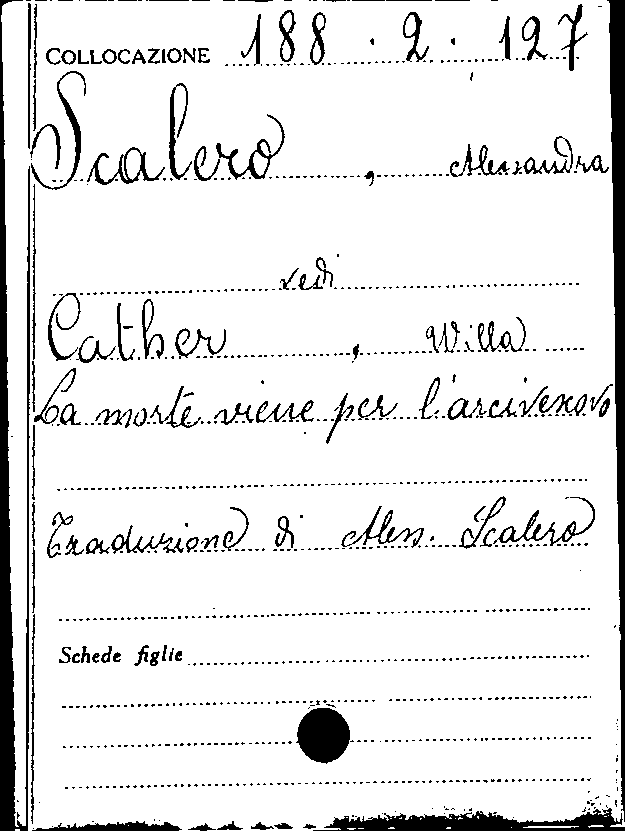 COLLOCAZIONE 188 . 2 . 127
Scalero , Alessandra
vedi
Cather , Willa
La morte viene per l'arcivescovo
Traduzione di Aless. Scalero
Schede figlie